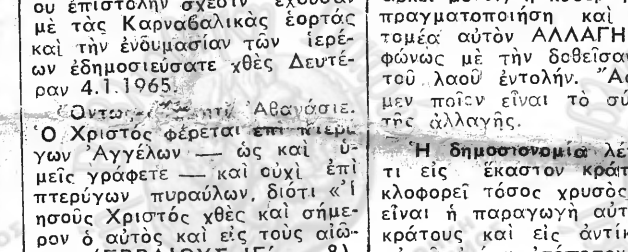 ου ἐπιστολὴν σχέσιν ἔχουσαν
μὲ τὰς Καρναβαλικὰς ἑορτάς
καὶ τὴν ἐνδυμασίαν τῶν ἱερέ-
ων ἐδημοσιεύσατε χθὲς Δευτέ-
ραν 4.1.1965.
Ἀθανάσιε.
Ὁ Χριστός φέρεται ἐπὶ πτερύ-
γων Ἀγγέλων — ὡς καὶ ὑ-
μεῖς γράφετε — καὶ οὐχὶ ἐπὶ
πτερύγων πυραύλων, διότι «Ἰ
ησοῦς Χριστός χθὲς καὶ σήμε-
ρον ὁ αὐτὸς καὶ εἰς τοὺς αἰῶ-
πραγματοποίηση καὶ
τομέα αὐτὸν ΑΛΛΑΓΗ
φώνως μὲ τὴν δοθεῖσαν
τοῦ λαοῦ ἐντολήν.
μεν ποῖον εἶναι τὸ σύ
τῆς ἀλλαγῆς.
Ἡ δημοσιονομία λέ
τι εἰς ἕκαστον κράτ
κλοφορεῖ τόσος χρυσὸς
εἶναι ἡ παραγωγὴ αὐτ
κράτους καὶ εἰς ἀντίκ